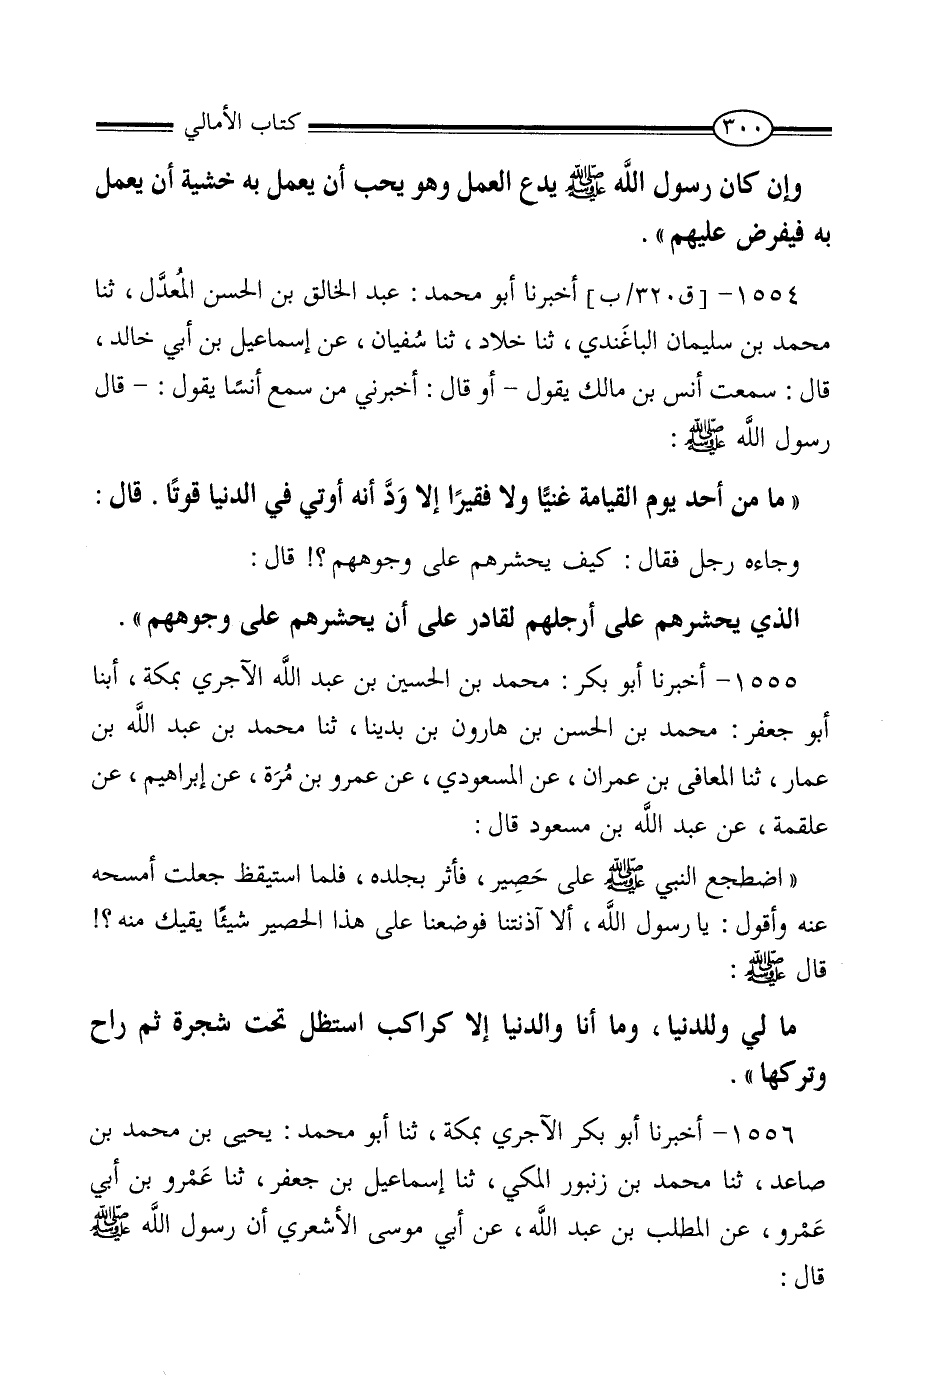 ٣٠٠ كتاب الأمالي
وإن كان رسول اللَّه ﷺ يدع العمل وهو يحب أن يعمل به خشية أن يعمل
به فيفرض عليهم » .
١٥٥٤- [ق٣٢٠/ب] أخبرنا أبو محمد : عبد الخالق بن الحسن المُعدَّل ، ثنا
محمد بن سليمان الباغَندي ، ثنا خلاد ، ثنا سُفيان ، عن إسماعيل بن أبي خالد ،
قال : سمعت أنس بن مالك يقول - أو قال : أخبرني من سمع أنسًا يقول : - قال
رسول اللَّه ﷺ :
« ما من أحد يوم القيامة غنيًّا ولا فقيرًا إلا وَدَّ أنه أوتي في الدنيا قوتًا . قال :
وجاءه رجل فقال : كيف يحشرهم على وجوههم ؟! قال :
الذي يحشرهم على أرجلهم لقادر على أن يحشرهم على وجوههم » .
١٥٥٥- أخبرنا أبو بكر : محمد بن الحسين بن عبد اللَّه الآجري بمكة ، أبنا
أبو جعفر : محمد بن الحسن بن هارون بن بدينا ، ثنا محمد بن عبد اللَّه بن
عمار ، ثنا المعافى بن عمران ، عن المسعودي ، عن عمرو بن مُرَة ، عن إبراهيم ، عن
علقمة ، عن عبد اللَّه بن مسعود قال :
« اضطجع النبي ﷺ على حَصِير ، فأثر بجلده ، فلما استيقظ جعلت أمسحه
عنه وأقول : يا رسول اللَّه ، ألا آذنتنا فوضعنا على هذا الحصير شيئًا يقيك منه ؟!
قال ﷺ :
ما لي وللدنيا ، وما أنا والدنيا إلا كراكب استظل تحت شجرة ثم راح
وتركها » .
١٥٥٦- أخبرنا أبو بكر الآجري بمكة ، ثنا أبو محمد : يحيى بن محمد بن
صاعد ، ثنا محمد بن زنبور المكي ، ثنا إسماعيل بن جعفر ، ثنا عَمْرو بن أبي
عَمْرو ، عن المطلب بن عبد اللَّه ، عن أبي موسى الأشعري أن رسول اللَّه ﷺ
قال :